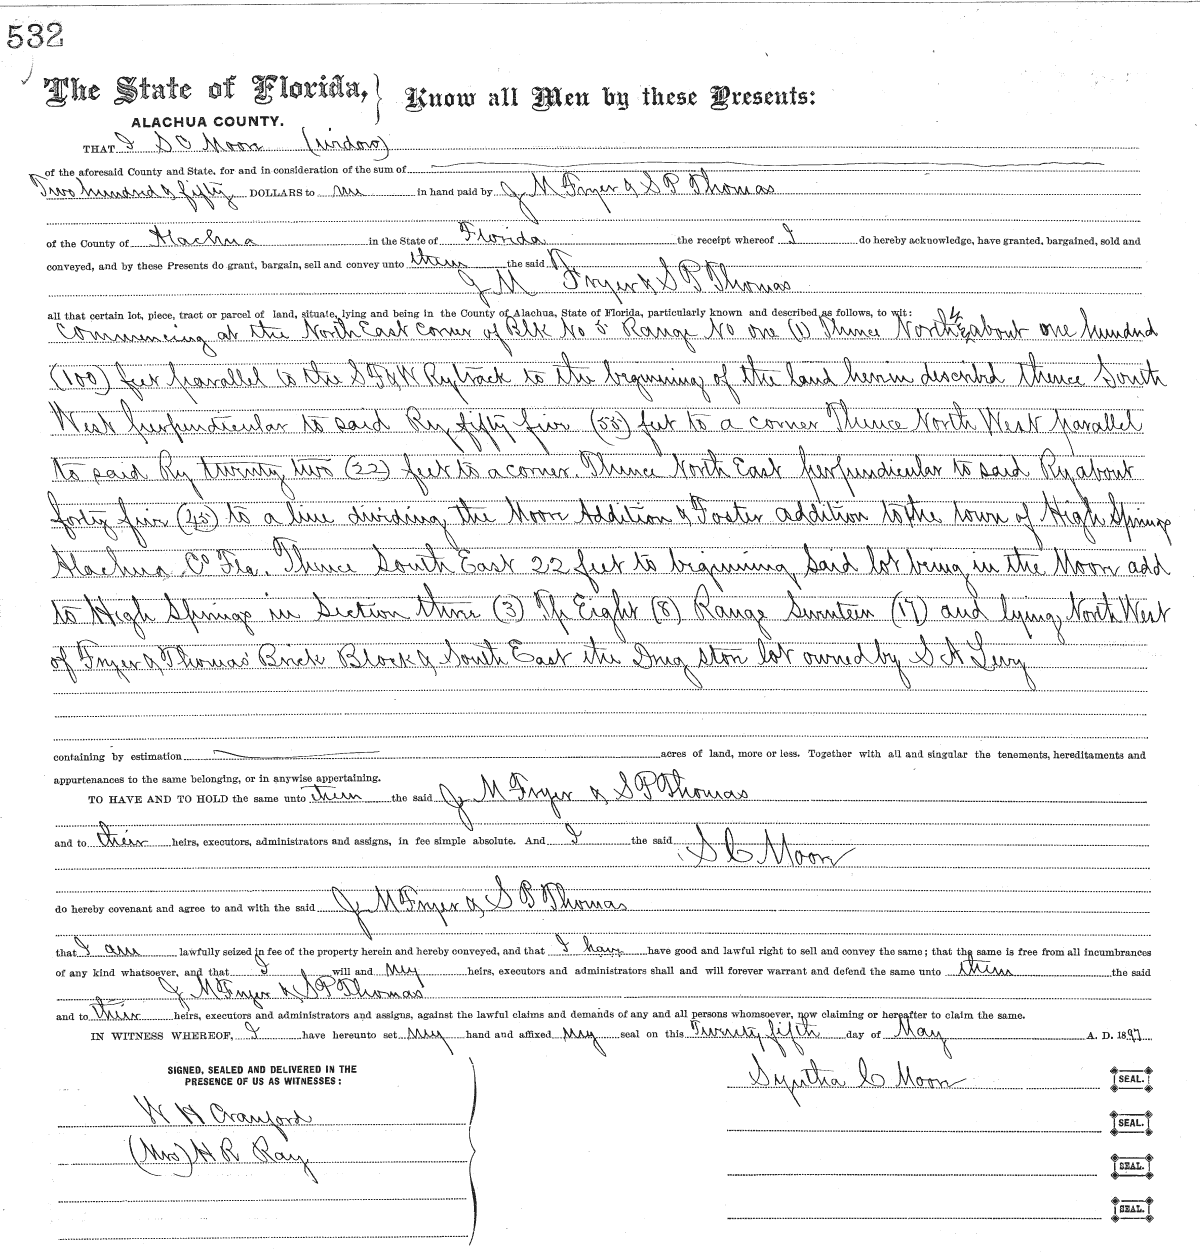 532
The State of Florida, } Know all Men by these Presents:
ALACHUA COUNTY.
THAT I S C Moon (widow)
of the aforesaid County and State, for and in consideration of the sum of
Two hundred & fifty DOLLARS to me in hand paid by J M Fryer & S P Thomas
of the County of Alachua in the State of Florida the receipt whereof I do hereby acknowledge, have granted, bargained, sold and
conveyed, and by these Presents do grant, bargain, sell and convey unto them the said
J M Fryer & S P Thomas
all that certain lot, piece, tract or parcel of land, situate, lying and being in the County of Alachua, State of Florida, particularly known and described as follows, to wit:
Commencing at the North East corner of Blk No 5 Range No one (1) Thence North about one hundred
(100) feet parallel to the S F & W Ry track to the beginning of the land herein described thence South
West perpendicular to said Ry fifty five (55) feet to a corner Thence North West parallel
to said Ry twenty two (22) feet to a corner. Thence North East perpendicular to said Ry about
forty five (45) to a line dividing the Moon Addition & Foster addition to the town of High Springs
Alachua Co Fla. Thence South East 22 feet to beginning Said lot being in the Moon add
to High Springs in Section three (3) Tp Eight (8) Range Seventeen (17) and lying North West
of Fryer & Thomas' Brick Block & South East the Drug store lot owned by S A Levy
containing by estimation acres of land, more or less. Together with all and singular the tenements, hereditaments and
appurtenances to the same belonging, or in anywise appertaining.
TO HAVE AND TO HOLD the same unto them the said J M Fryer & S P Thomas
and to their heirs, executors, administrators and assigns, in fee simple absolute. And I the said S C Moon
do hereby covenant and agree to and with the said J M Fryer & S P Thomas
that I am lawfully seized in fee of the property herein and hereby conveyed, and that I have have good and lawful right to sell and convey the same; that the same is free from all incumbrances
of any kind whatsoever, and that I will and my heirs, executors and administrators shall and will forever warrant and defend the same unto them the said
J M Fryer & S P Thomas
and to their heirs, executors and administrators and assigns, against the lawful claims and demands of any and all persons whomsoever, now claiming or hereafter to claim the same.
IN WITNESS WHEREOF, I have hereunto set my hand and affixed my seal on this Twenty fifth day of May A. D. 1897
SIGNED, SEALED AND DELIVERED IN THE
PRESENCE OF US AS WITNESSES:
Syntha C Moon SEAL.
W H Cranford
SEAL.
(Mrs) H R Ray
SEAL.
SEAL.